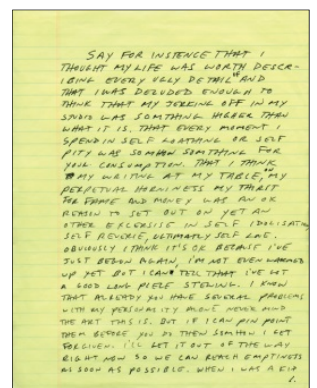 SAY FOR INSTENCE THAT I
THOUGHT MY LIFE WAS WORTH DESCR-
IBING EVERY UGLY DETAIL" AND
THAT I WAS DELUDED ENOUGH TO
THINK THAT MY JERKING OFF IN MY
STUDIO WAS SOMTHING HIGHER THEN
WHAT IT IS. THAT EVERY MOMENT I
SPEND IN SELF LOATHING OR SELF
PITY WAS SOMHOW SOMTHING FOR
YOUR CONSUMPTION. THAT I THINK
MY WRITING AT MY TABLE, MY
PERPETUAL HORNINESS MY THIRST
FOR FAME AND MONEY WAS AN OK
REASON TO SET OUT ON YET AN
OTHER EXCERSISE IN SELF IDOLISATION
SELF REVERIE, ULTIMATLY SELF LOVE.
OBVIOUSLY I THINK IT'S OK BECAUSE I'VE
JUST BEGUN AGAIN, I'M NOT EVEN WARMED
UP YET BUT I CAN TELL THAT I'VE GOT
A GOOD LONG PIECE STEWING. I KNOW
THAT ALREADY YOU HAVE SEVERAL PROBLEMS
WITH MY PERSONALITY ALONE NEVER MIND
THE ART THIS IS. BUT IF I CAN PIN POINT
THEM BEFORE YOU DO THEN SOMHOW I GET
FORGIVEN. I'LL GET IT OUT OF THE WAY
RIGHT NOW SO WE CAN REACH EMPTINESS
AS SOON AS POSSIBLE. WHEN I WAS A KID
1.